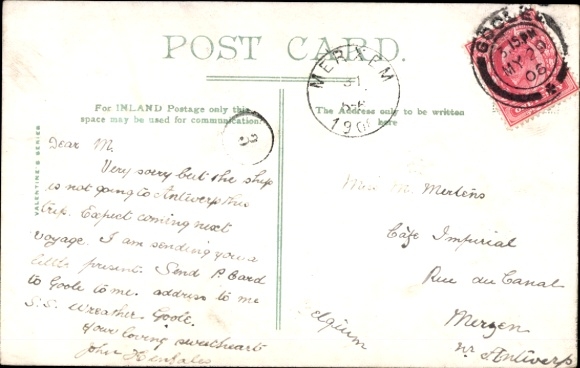 POST CARD.
For INLAND Postage only this
space may be used for communication.
The Address only to be written
here
VALENTINE'S SERIES
MERXEM
1906
GOOLE
MY
06
3
Dear M.
Very sorry but the ship
is not going to Antwerp this
trip. Expect coming next
voyage. I am sending you a
little present. Send P. Card
to Goole to me. address to me
S.S. Wreather. Goole.
your loving sweetheart
John
M. Mertens
Café Imperial
Rue du Canal
Merxen
nr Antwerp
elgium